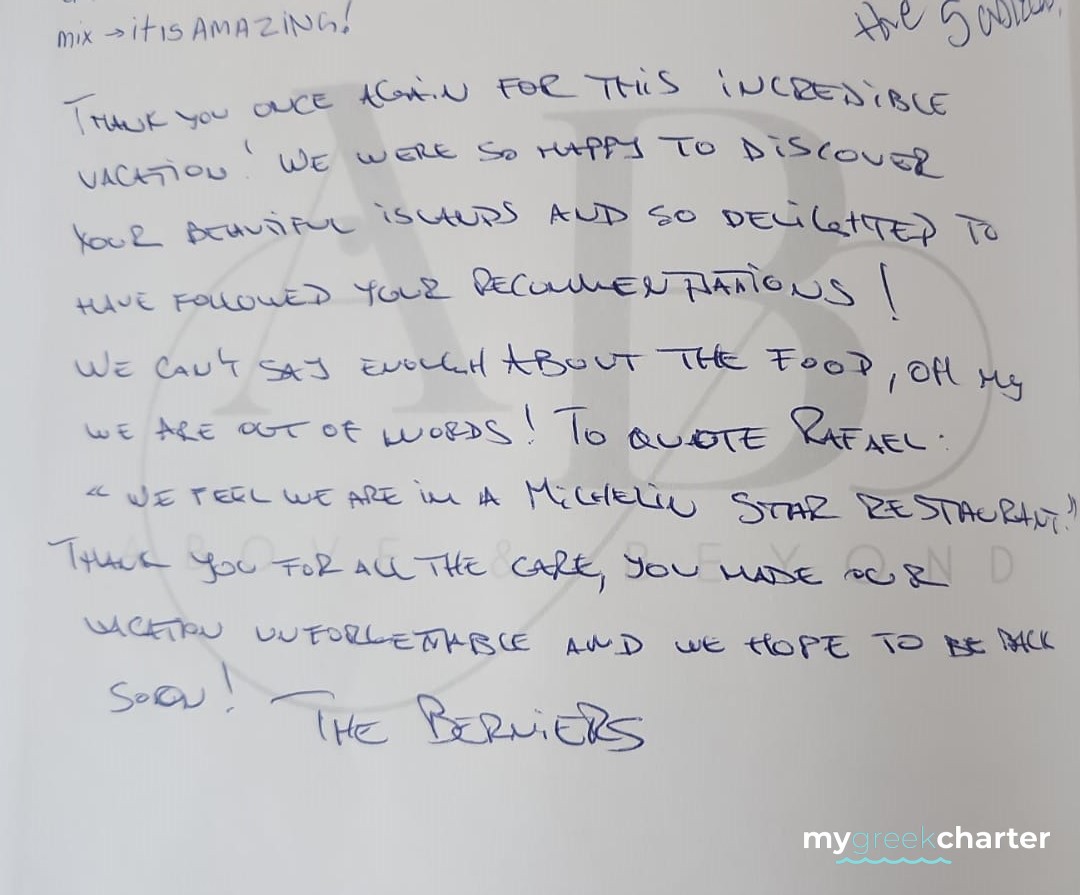 mix → it is AMAZING!
the
THANK YOU ONCE AGAIN FOR THIS INCREDIBLE
VACATION! WE WERE SO HAPPY TO DISCOVER
YOUR BEAUTIFUL ISLANDS AND SO DELIGHTED TO
HAVE FOLLOWED YOUR RECOMMENDATIONS!
WE CAN'T SAY ENOUGH ABOUT THE FOOD, OH MY
WE ARE OUT OF WORDS! TO QUOTE RAFAEL:
"WE FEEL WE ARE IN A MICHELIN STAR RESTAURANT."
THANK YOU FOR ALL THE CARE, YOU MADE OUR
VACATION UNFORGETTABLE AND WE HOPE TO BE BACK
SOON! THE BERNIERS
AB
ABOVE & BEYOND
mygreekcharter